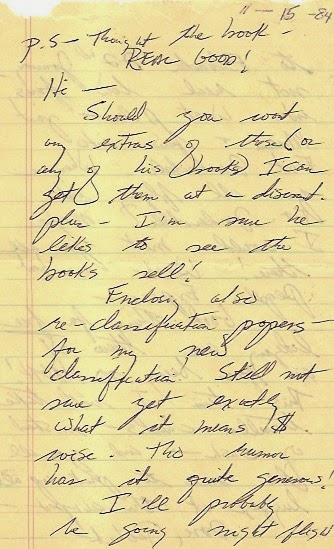 11-15-84
P.S - Thought the book -
REAL GOOD!
Hi -
Should you want
any extras of these (or
any of his books) I can
get them at a discount.
plus - I'm sure he
likes to see the
book's sell!
Enclosing also
re-classification papers -
for my new
classification. Still not
sure yet exactly
what it means $.
wise. Tho rumor
has it quite generous!
I'll probably
be going night flight